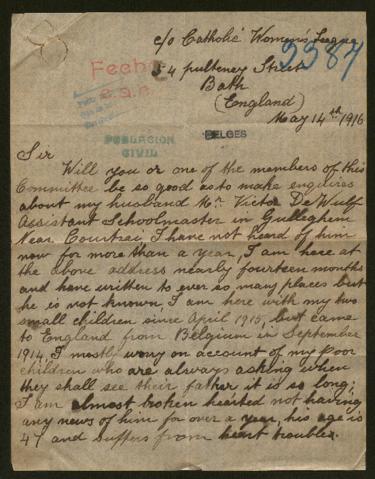 c/o Catholic Women's League
5387
Fecha
e.a.e.
54 pulteney Street
Bath
(England)
May 14th 1916
POBLACION
CIVIL
BELGES
Sir
Will you or one of the members of this
Committee be so good as to make enquires
about my husband Mr. Victor De Wulf
Assistant Schoolmaster in Gulleghem
Near Courtrai I have not heard of him
now for more than a year, I am here at
the above address nearly fourteen months
and have written to ever so many places but
he is not known, I am here with my two
small children since April 1915, but came
to England from Belgium in September
1914, I mostly worry on account of my poor
children who are always asking when
they shall see their father it is so long;
I am almost broken hearted not having
any news of him for over a year, his age is
47 and suffers from heart trouble.